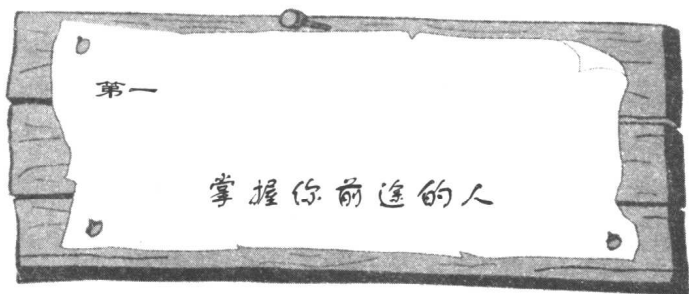 第一
掌握你前途的人